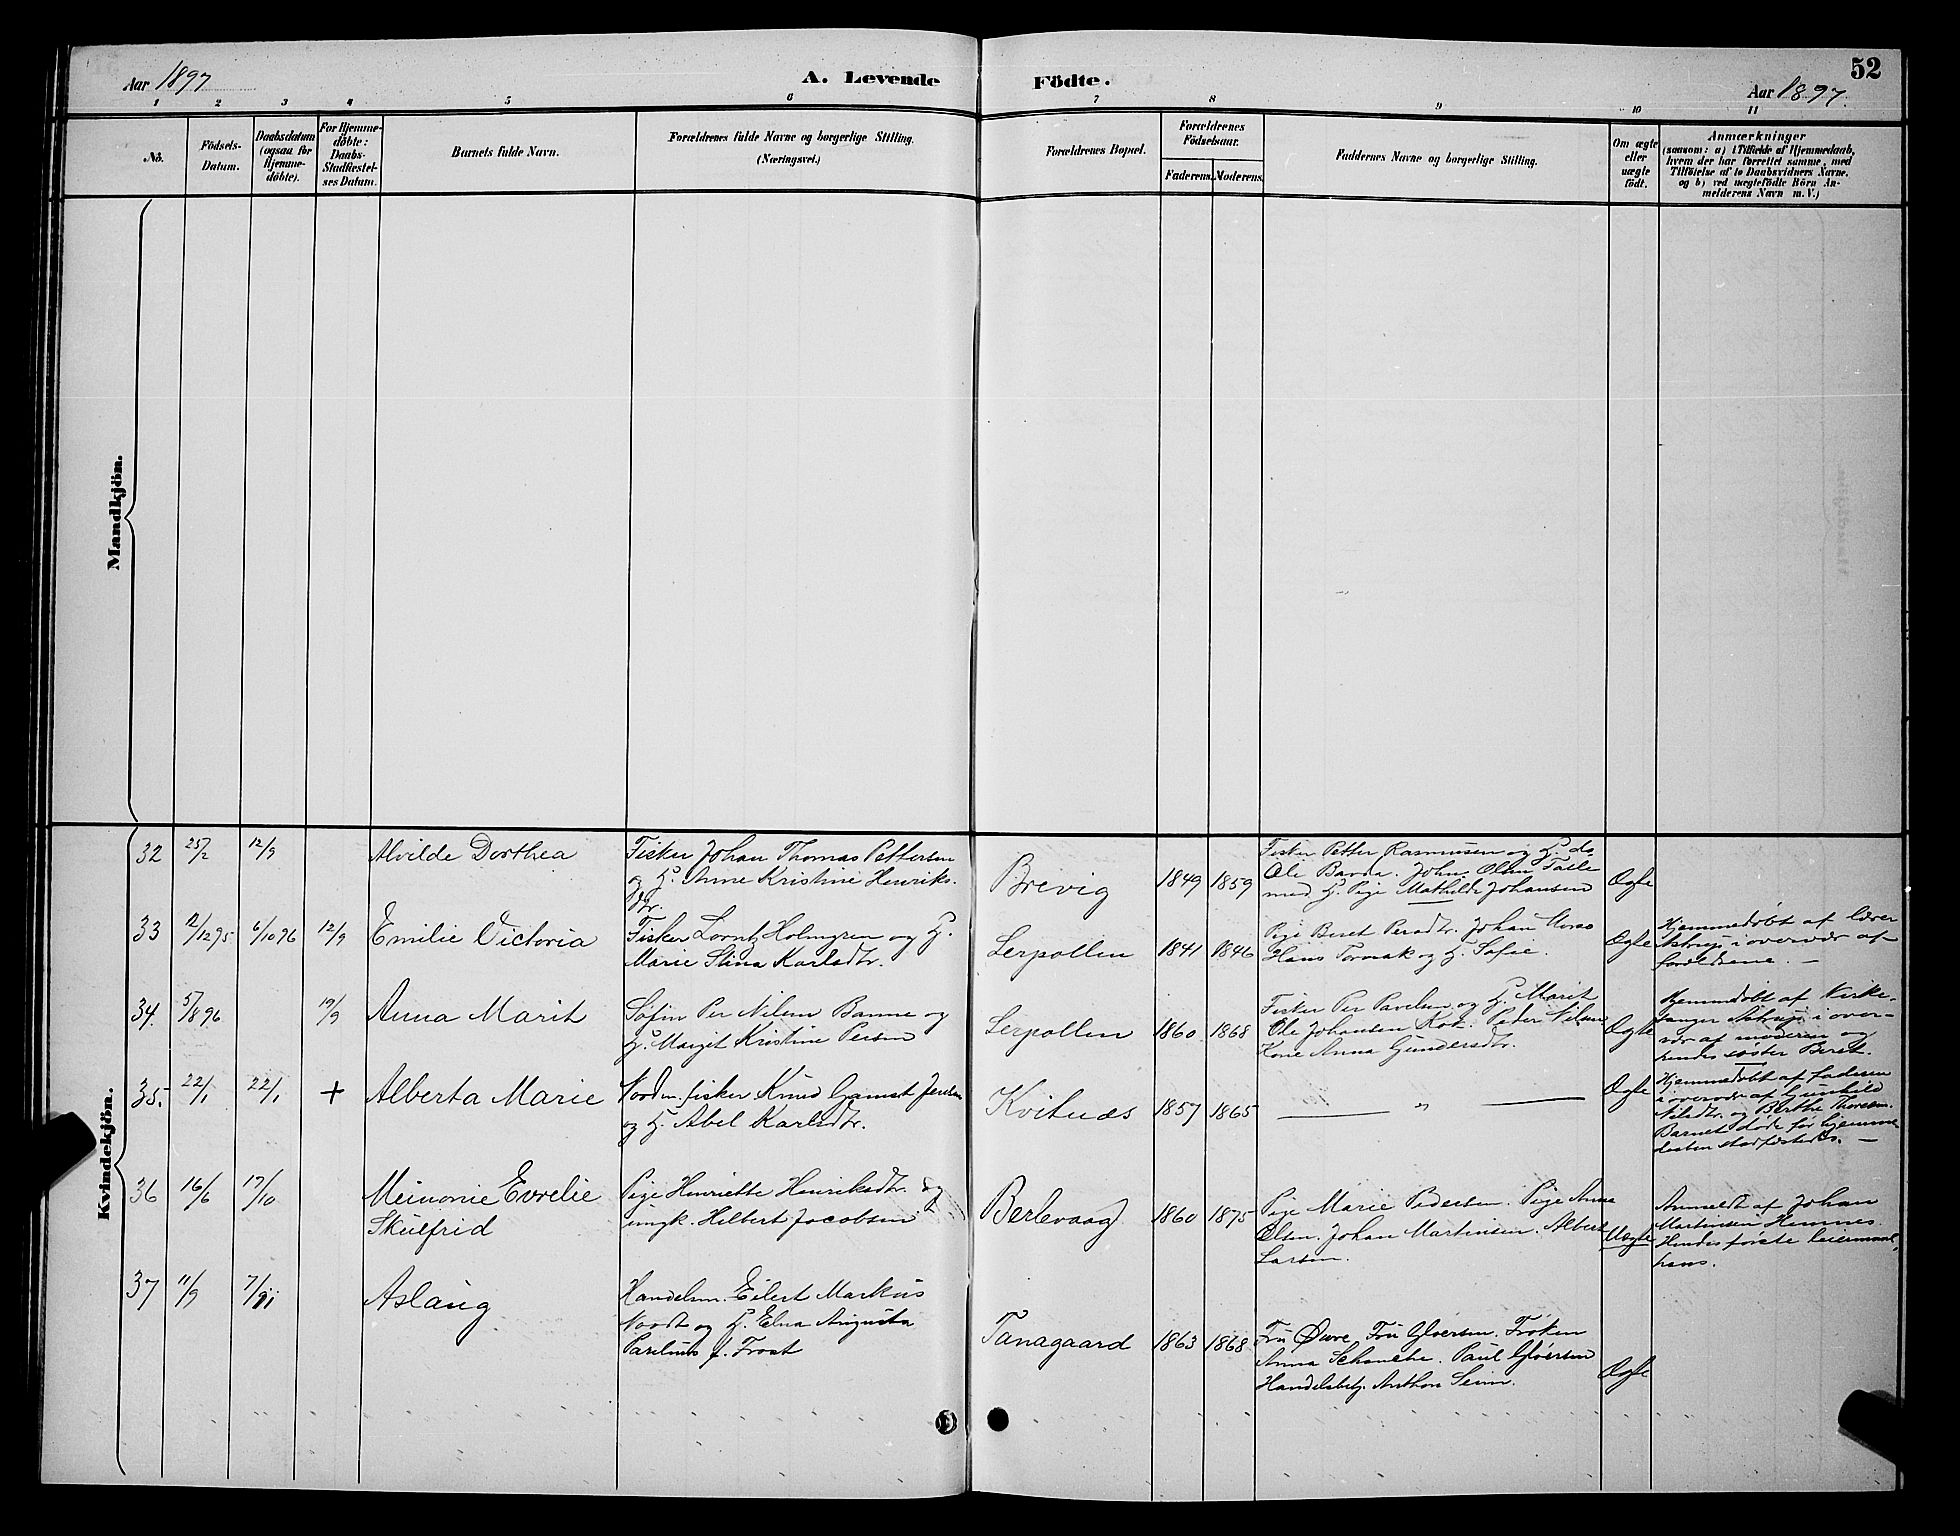 Aar 1897
A. Levende Födte.
52
Aar 1897.
1 2 3 4 5 6 7 8 9 10 11
No.
Födsels-
Datum.
Daabsdatum
(ogsaa for
Hjemme-
döbte).
For Hjemme-
döbte:
Daabs-
Stadfæstel-
ses Datum.
Barnets fulde Navn.
Forældrenes fulde Navne og borgerlige Stilling.
(Næringsvei.)
Forældrenes Bopæl.
Forældrenes
Födselsaar.
Faderens. Moderens.
Faddernes Navne og borgerlige Stilling.
Om ægte
eller
uægte
født.
Anmærkninger
(saasom: a) i Tilfælde af Hjemmedaab,
hvem der har forrettet samme, med
Tilföielse af to Daabsvidners Navne,
og b) ved uægtefödte Börn An-
melderens Navn m.V.)
Mandkjön.
Kvindekjön.
32 25/2 12/9 Alvilde Dorthea
Fisker Johan Thomas Pettersen
og H. Anne Kristine Henriks-
dtr.
Brevig 1849 1859
Fisker Petter Rasmussen og H. do.
Ole Johan Olsen
med H. Pige Mathilde Johansen
Ægte
33 12/12 95 6/10 96 12/9 Emilie Victoria
Fisker Lorntz Holmgren og H.
Marie Stina Karlsdtr.
Lerpollen 1841 1846
Pige Beret Persdtr. Johan
Hans Tornak og H. Sofie.
Ægte
Hjemmedøbt af lærer
Astrup i overvær af
forældrene. —
34. 5/8 96 19/9 Anna Marit
Søfin Per Nilsen Banne og
H. Margit Kristine Persen
Lerpollen 1860 1868
Fisker Per Pavelsen og H. Marit
Ole Johansen Kok. Peder Nilsen
Kone Anna Gundersdtr.
Ægte
Hjemmedøbt af Kirke-
sanger Astrup i over-
vær af moderen og
hendes søster Beret.
35. 22/1 22/1 + Alberta Marie
Nordm. fisker Knud Gamst Jensen
og H. Abel Karlsdtr.
Kvitnæs 1857 1865
— " —
Ægte
Hjemmedøbt af faderen
i overvær af Gunhild
Nilsdtr. og Berthe Thoresen.
Barnet døde før hjemme-
daaben stadfæstedes. —
36 16/6 17/10 Meinonie Evrelie
Skulfrid
Pige Henriette Henriksdtr. og
ungk. Hilbert Jacobsen
Berlevaag 1860 1875
Pige Marie Pedersen. Pige Anna
Olsen. Johan Martinsen. Albert
Larsen.
Uægte
Anmeldt af Johan
Martinsen Hemnes.
Hendes første leiermaal,
hans.
37 11/9 7/11 Aslaug
Handelsm. Eilert Markus
Nordt og H. Elna Augusta
f. Frost
Tanagaard 1863 1868
Fru Øwre. Fru Gløersen. Frøken
Anna Schanche. Paul Gløersen
Handelsbetj. Anthon Seim.
Ægte